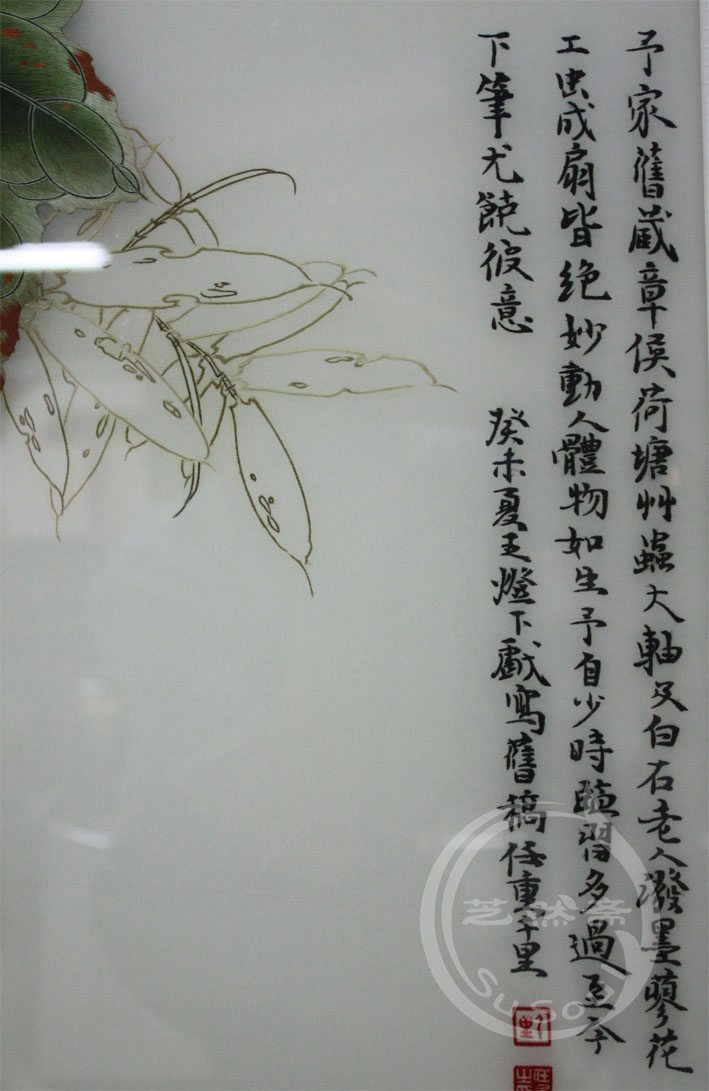 予家舊藏章侯荷塘艸蟲大軸又白石老人潑墨蓼花
工虫成扇皆絶妙動人體物如生予自少時臨習多過至今
下筆尤饒彼意
癸未夏五燈下戲寫舊稿任重千里
芝然斋